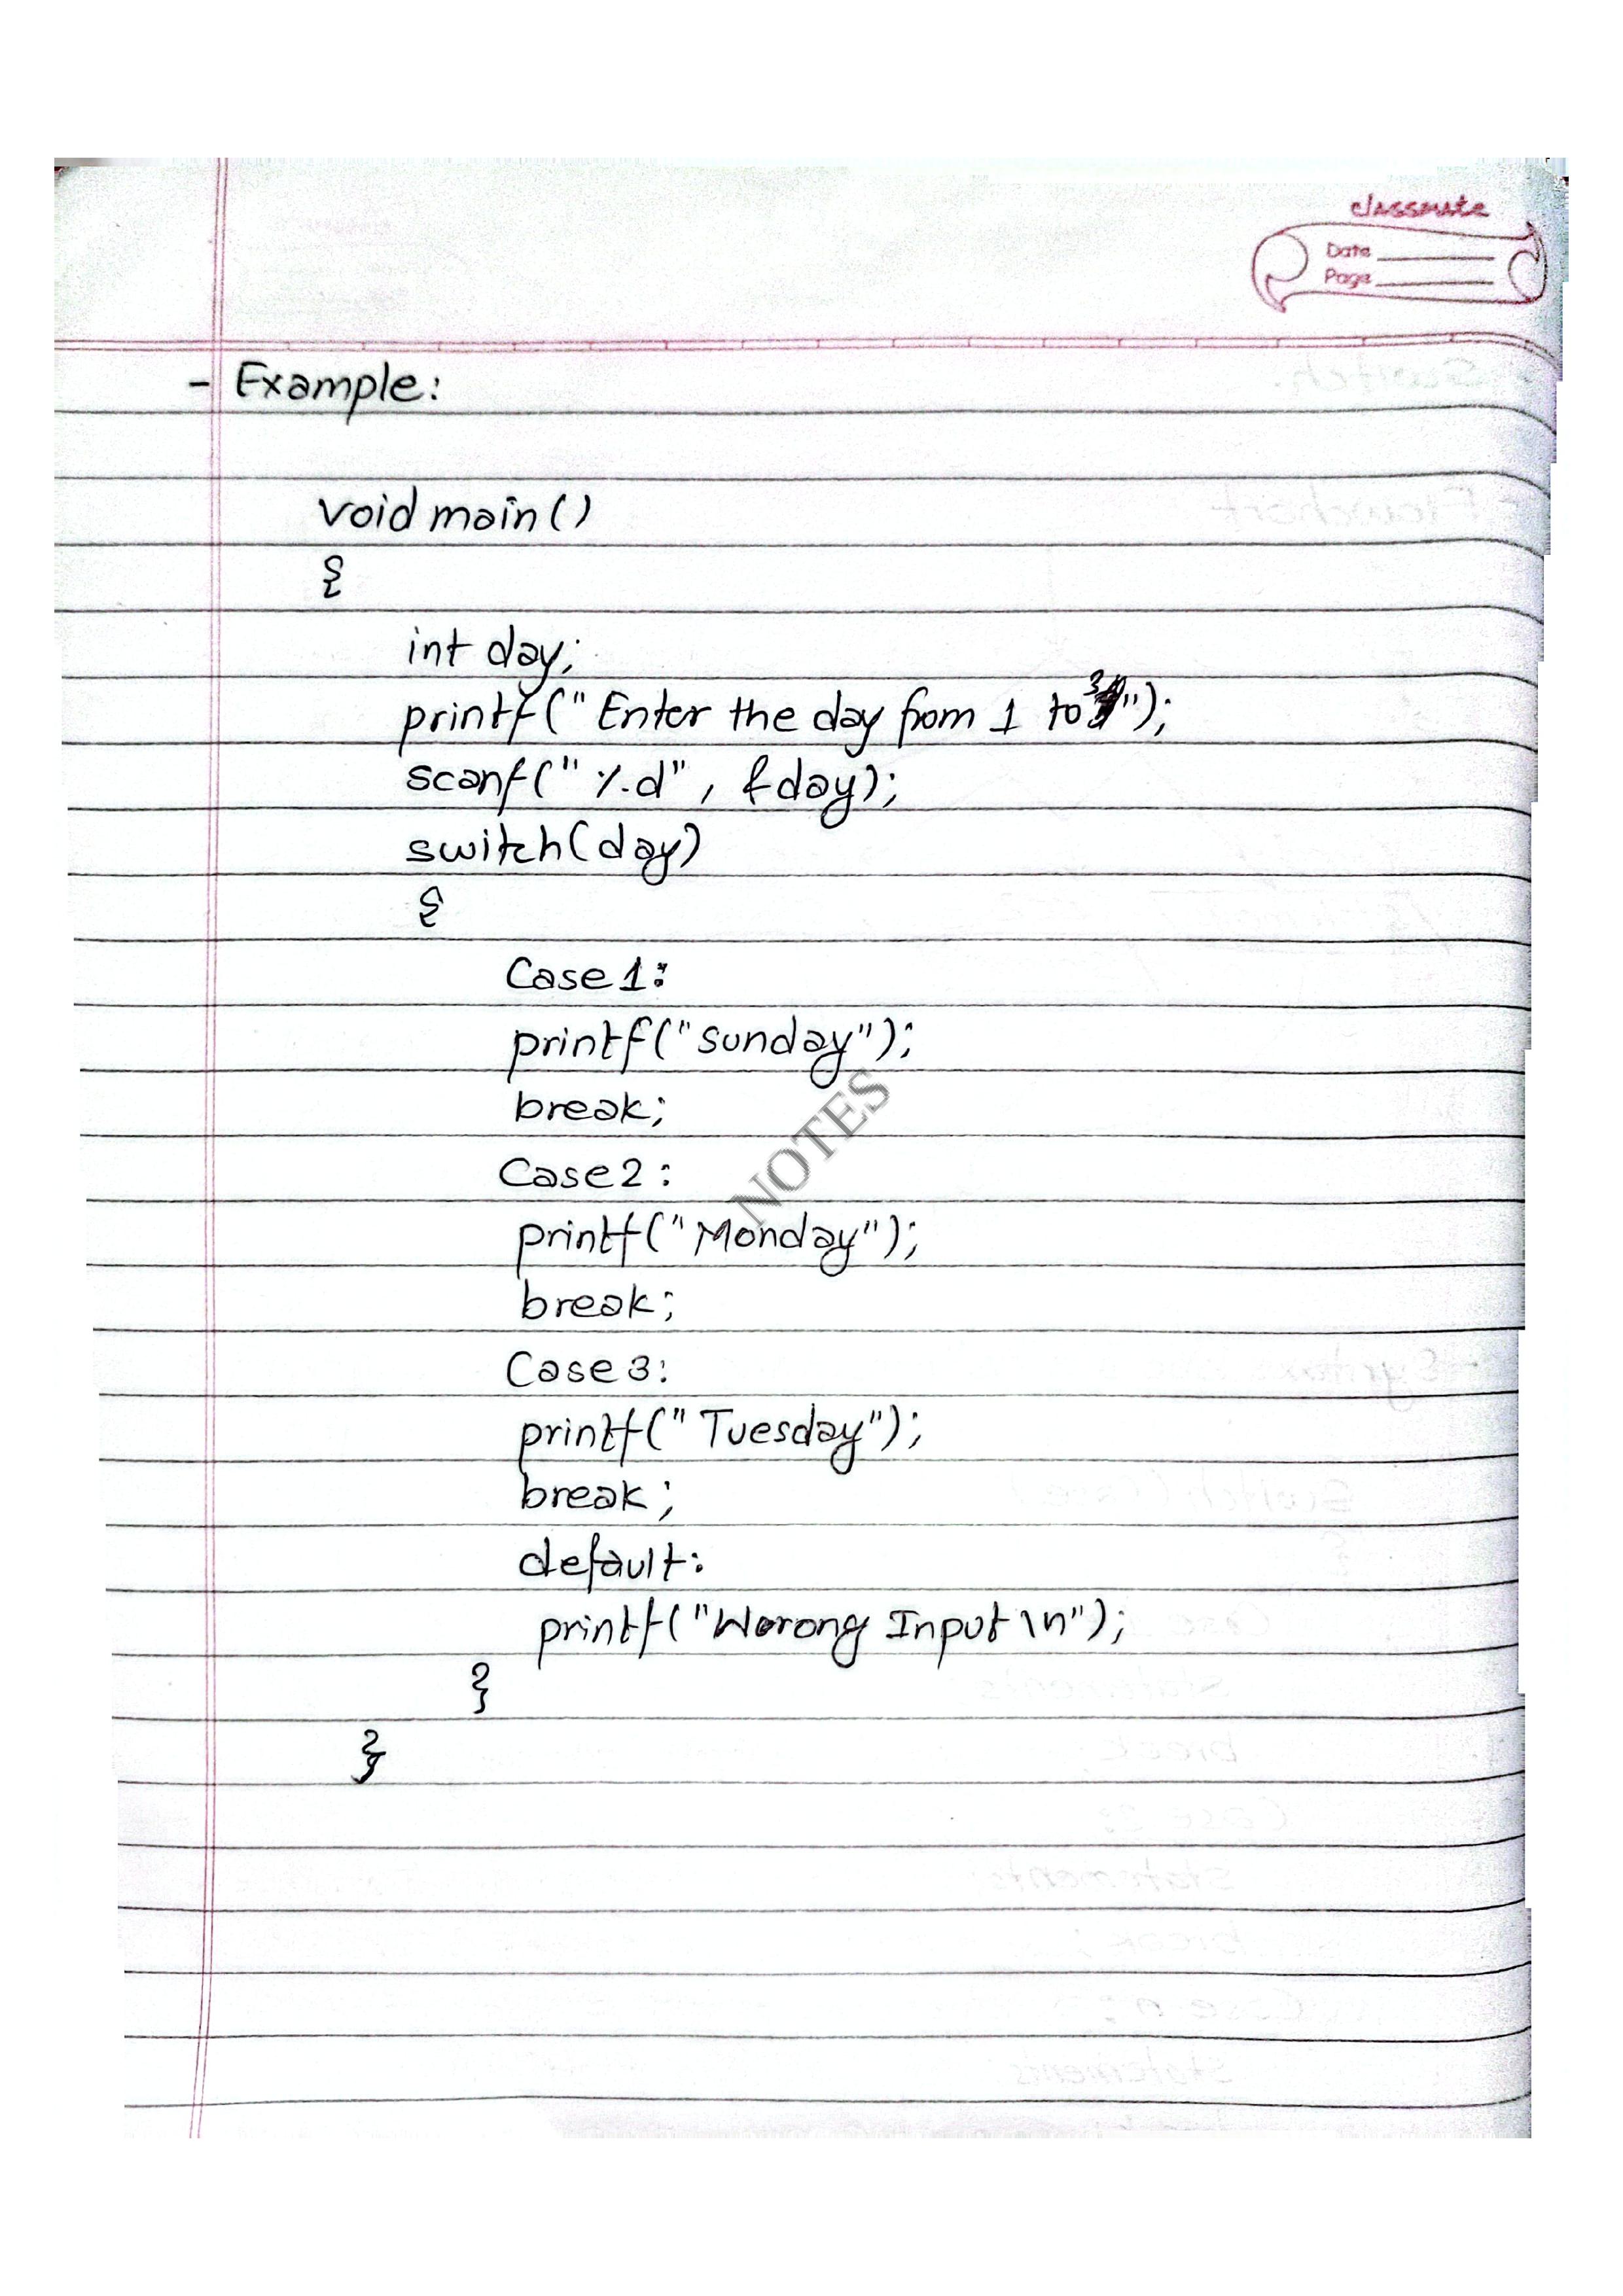 classmate
Date
Page
- Example:
void main()
{
int day;
printf("Enter the day from 1 to 3");
scanf("%d", &day);
switch(day)
{
Case1:
printf("Sunday");
break;
Case2:
printf("Monday");
break;
Case3:
printf("Tuesday");
break;
default:
printf("Worong Input\n");
}
}
NOTES